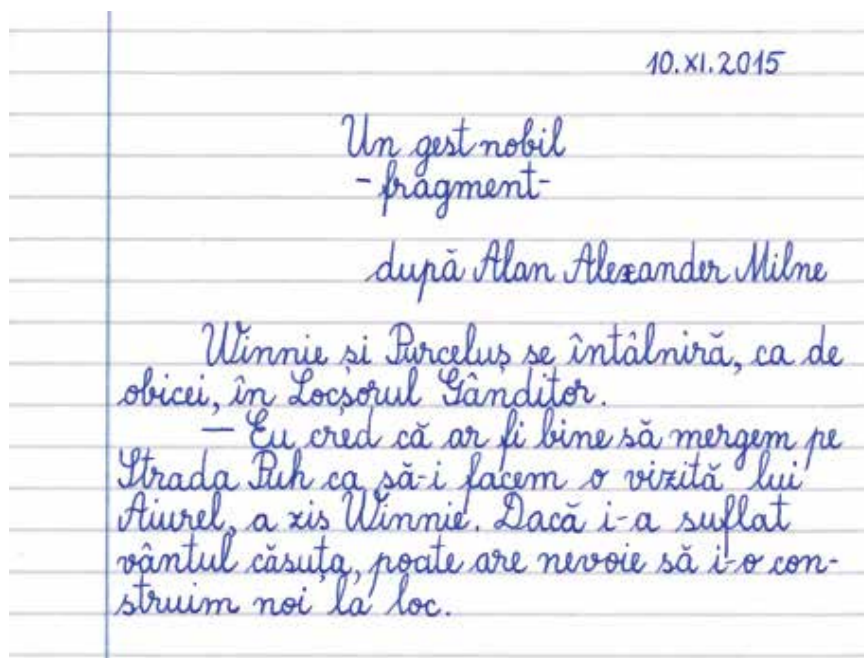 10.XI.2015
Un gest nobil
-fragment-
după Alan Alexander Milne
Winnie și Purceluș se întâlniră, ca de
obicei, în Locșorul Gânditor.
— Eu cred că ar fi bine să mergem pe
Strada Puh ca să-i facem o vizită lui
Aiurel, a zis Winnie. Dacă i-a suflat
vântul căsuța, poate are nevoie să i-o con-
struim noi la loc.